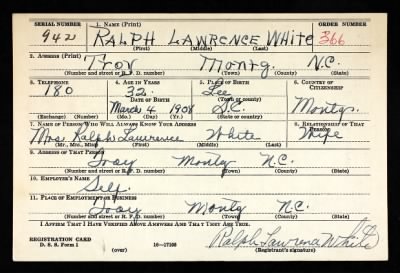 SERIAL NUMBER 1. NAME (Print) ORDER NUMBER
942 RALPH LAWRENCE WHITE 366
(First) (Middle) (Last)
2. ADDRESS (Print)
Troy Montg. N.C.
(Number and street or R. F. D. number) (Town) (County) (State)
3. TELEPHONE 4. AGE IN YEARS 5. PLACE OF BIRTH 6. COUNTRY OF CITIZENSHIP
180 32 Lee
DATE OF BIRTH (Town or county)
March 4 1908 S.C. Montg.
(Exchange) (Number) (Mo.) (Day) (Yr.) (State or country)
7. NAME OF PERSON WHO WILL ALWAYS KNOW YOUR ADDRESS 8. RELATIONSHIP OF THAT PERSON
Mrs. Ralph Lawrence White Wife
(Mr., Mrs., Miss) (First) (Middle) (Last)
9. ADDRESS OF THAT PERSON
Troy Montg N.C.
(Number and street or R. F. D. number) (Town) (County) (State)
10. EMPLOYER'S NAME
Self.
11. PLACE OF EMPLOYMENT OR BUSINESS
Troy Montg N.C.
(Number and street or R. F. D. number) (Town) (County) (State)
I AFFIRM THAT I HAVE VERIFIED ABOVE ANSWERS AND THAT THEY ARE TRUE.
REGISTRATION CARD Ralph Lawrence White
D. S. S. Form 1 (over) 16—17105 (Registrant's signature)